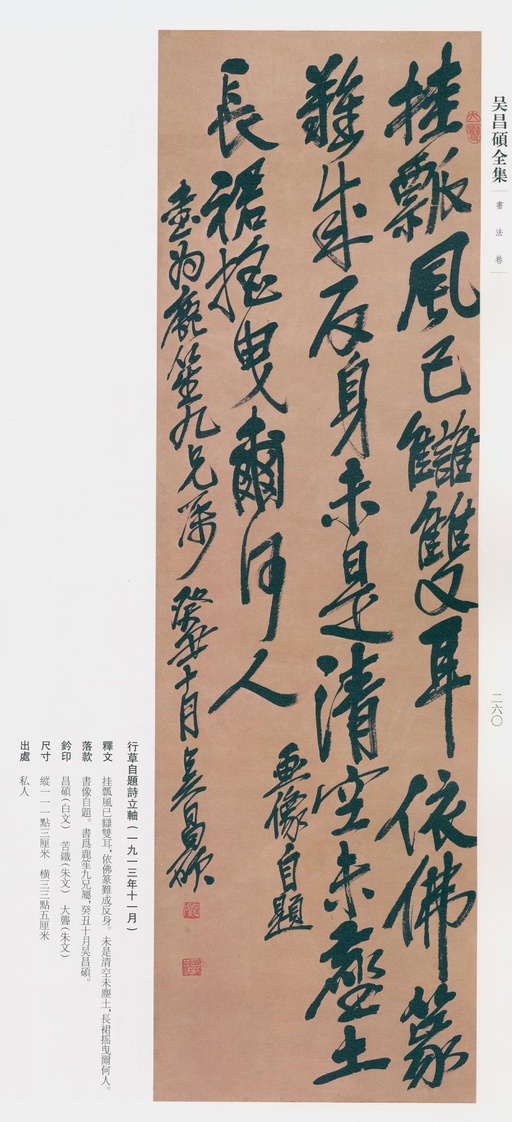 吴昌碩全集
書法卷
二六〇
挂瓢風已讎雙耳依佛篆
難成反身未是清空未塵土
長裙搖曳爾何人
畫像自題
書為鹿笙九兄属 癸丑十月吴昌碩
行草自題詩立軸(一九一三年十一月)
釋文 挂瓢風已讎雙耳,依佛篆難成反身。未是清空未塵土,長裙摇曳爾何人。
落款 書像自題。書爲鹿笙九兄屬,癸丑十月吴昌碩。
鈐印 昌碩(白文) 苦鐵(朱文) 大聾(朱文)
尺寸 縱一一一點三厘米 横三三點五厘米
出處 私人